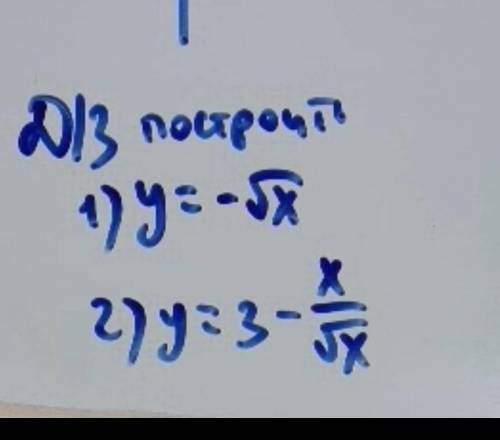 Д/З построить
1) y = -√x
2) y = 3 - x/√x